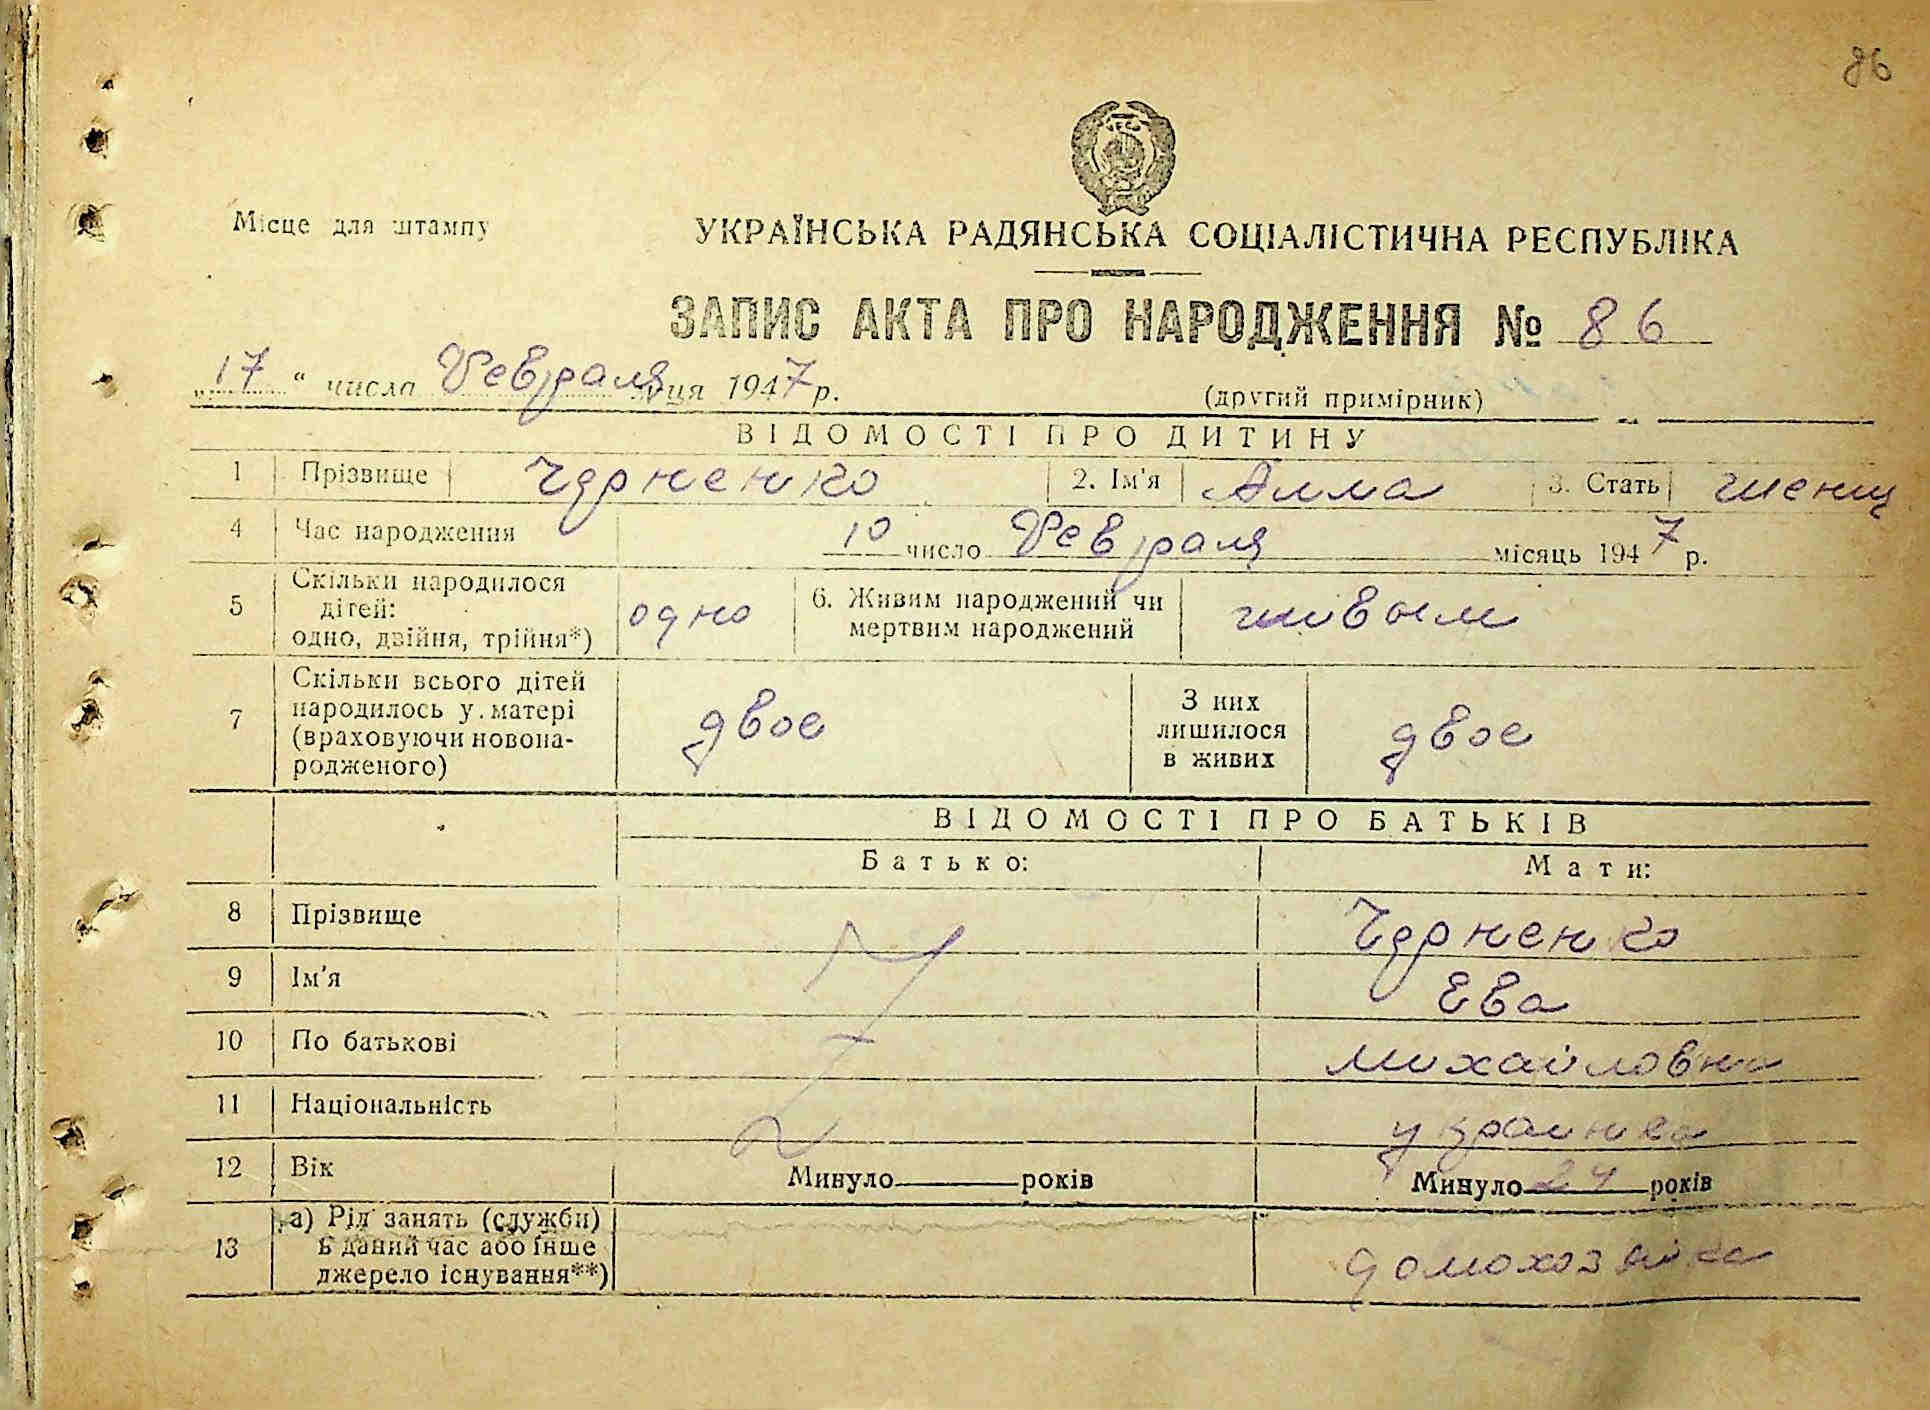 86
Місце для штампу
УКРАЇНСЬКА РАДЯНСЬКА СОЦІАЛІСТИЧНА РЕСПУБЛІКА
ЗАПИС АКТА ПРО НАРОДЖЕННЯ № 86
„17“ числа Февраля м-ця 1947 р.
(другий примірник)
ВІДОМОСТІ ПРО ДИТИНУ
1 Прізвище Черненко 2. Ім'я Алла 3. Стать женщ
4 Час народження 10 число Февраля місяць 1947 р.
5 Скільки народилося
дітей:
одно, двійня, трійня*) одно
6. Живим народжений чи
мертвим народжений живым
7 Скільки всього дітей
народилось у матері
(враховуючи новона-
родженого) двое
З них
лишилося
в живих двое
ВІДОМОСТІ ПРО БАТЬКІВ
Батько: Мати:
8 Прізвище Черненко
9 Ім'я Ева
10 По батькові Михайловна
11 Національність украинка
12 Вік Минуло років Минуло 24 років
13 а) Рід занять (служби)
в даний час або інше
джерело існування**) домохозяйка